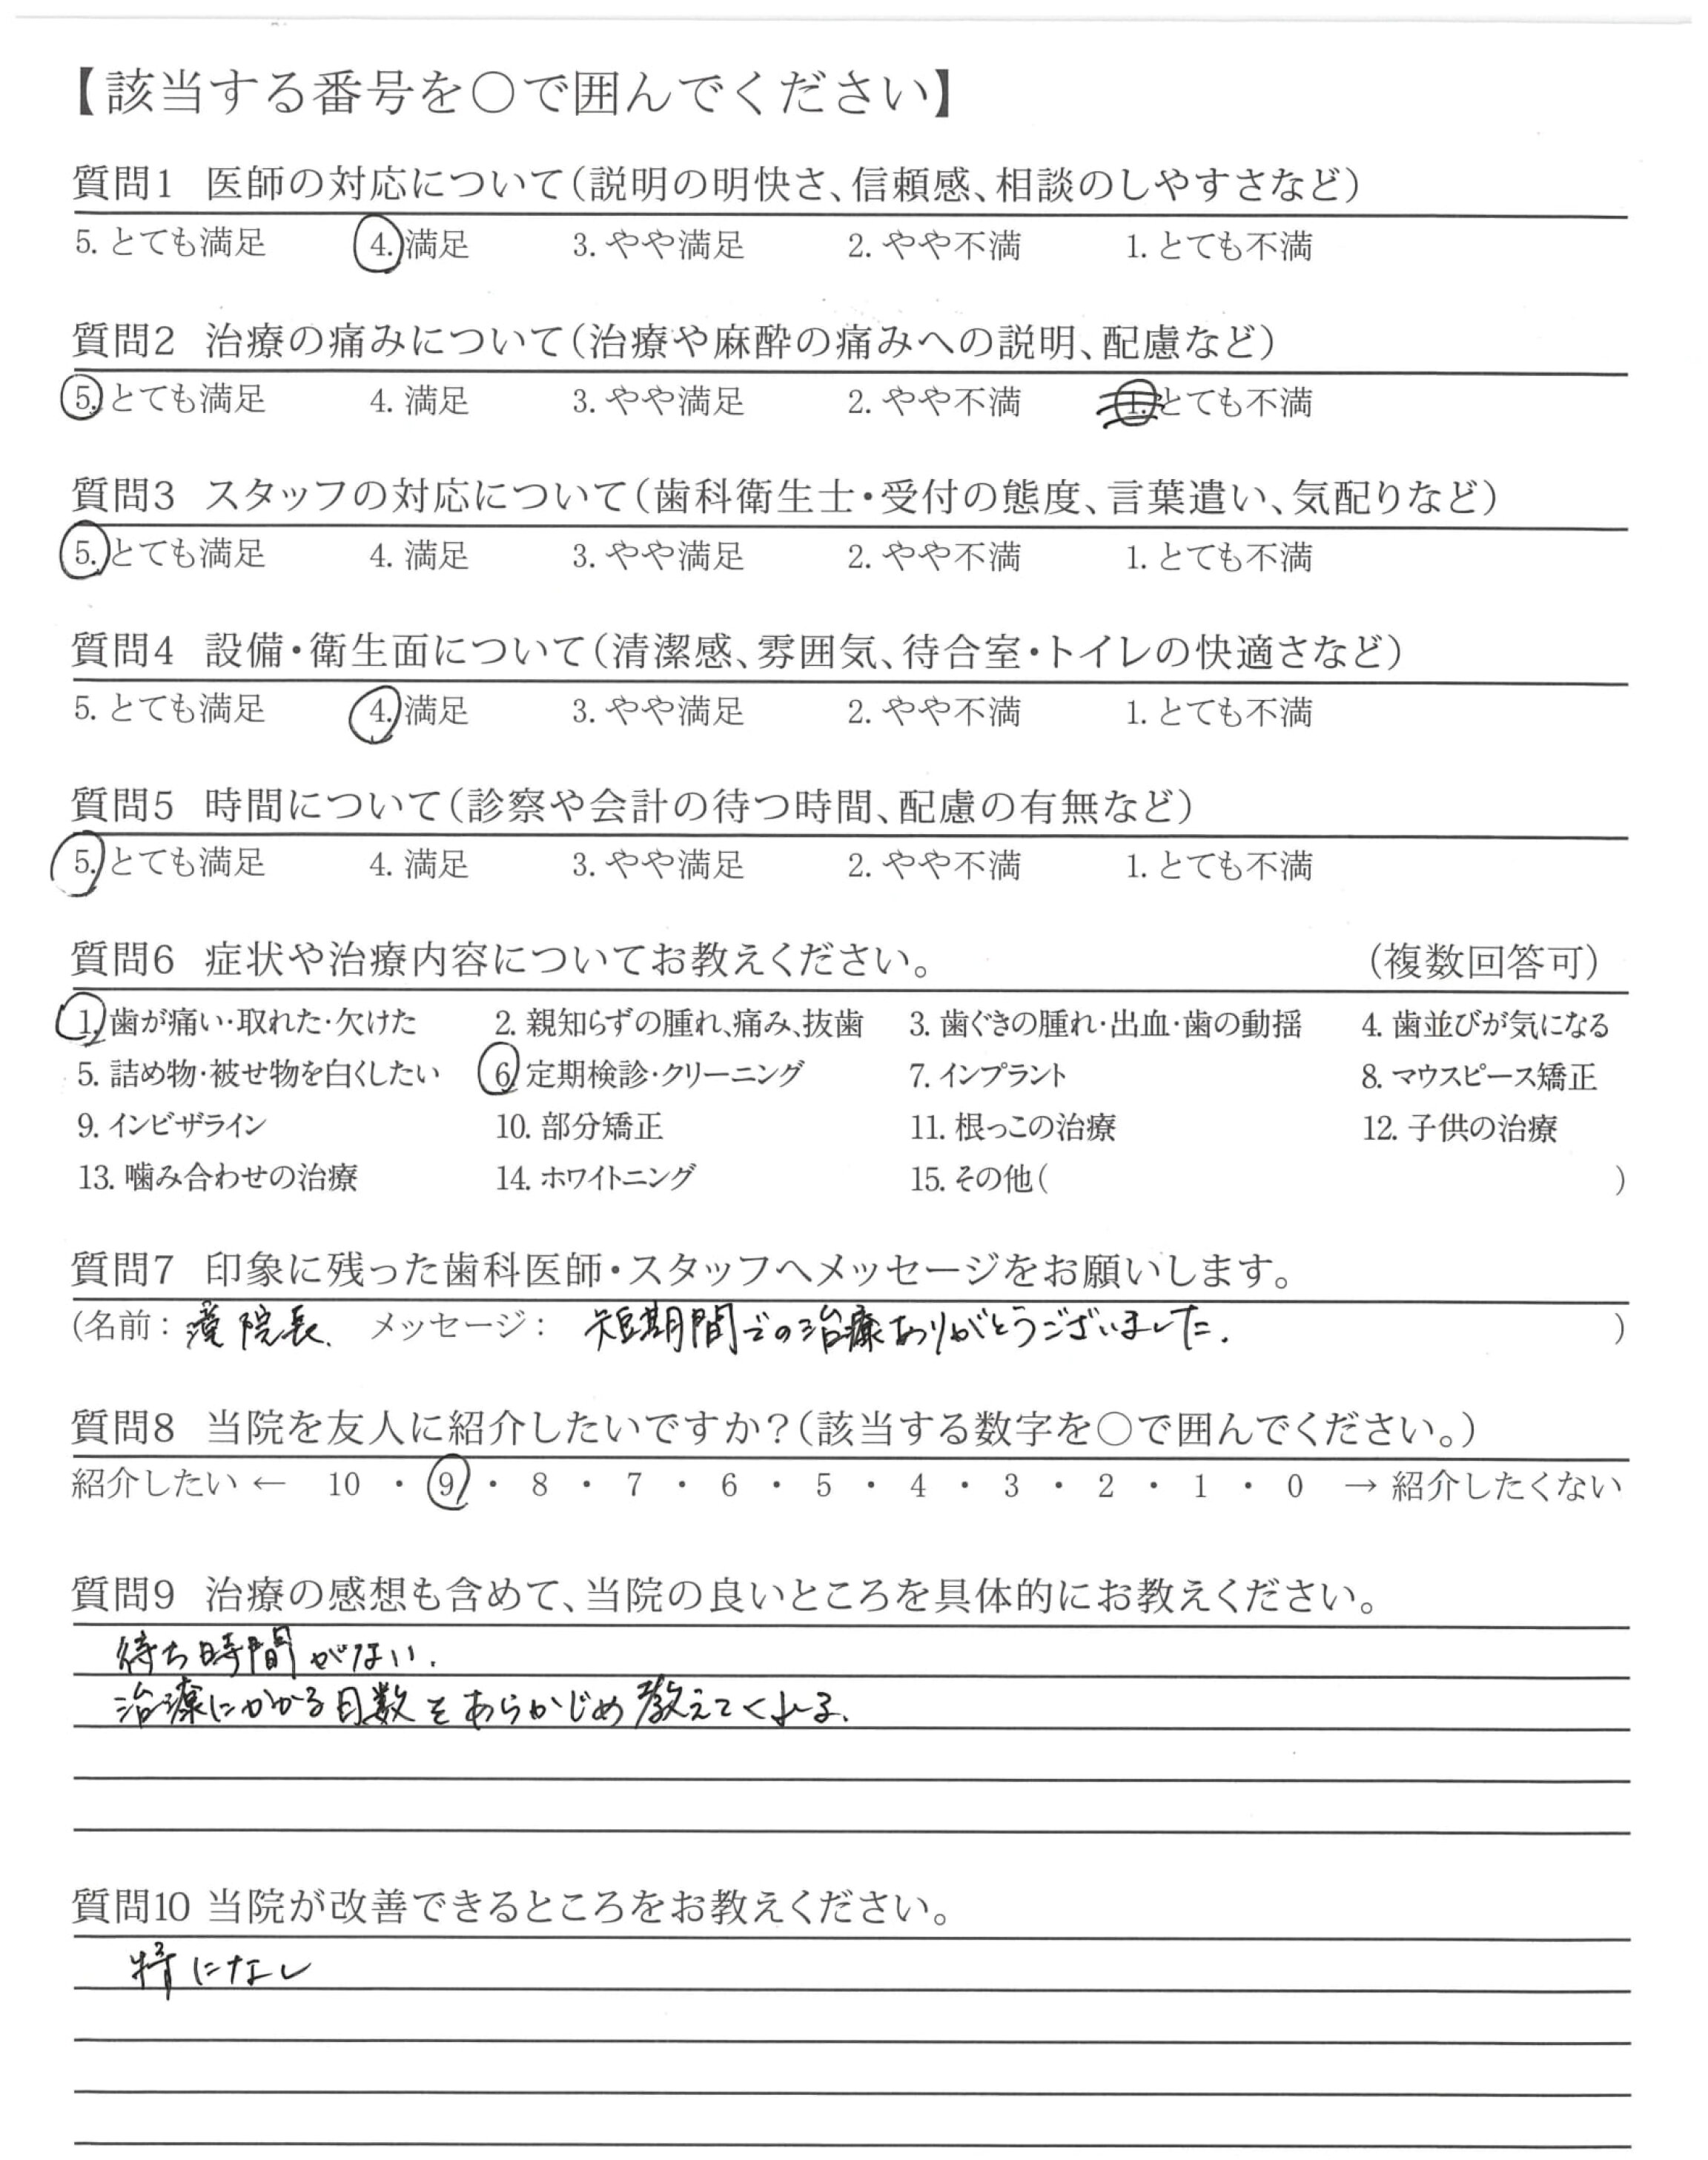 【該当する番号を○で囲んでください】
質問1 医師の対応について（説明の明快さ、信頼感、相談のしやすさなど）
5. とても満足 4. 満足 3. やや満足 2. やや不満 1. とても不満
質問2 治療の痛みについて（治療や麻酔の痛みへの説明、配慮など）
5. とても満足 4. 満足 3. やや満足 2. やや不満 1. とても不満
質問3 スタッフの対応について（歯科衛生士・受付の態度、言葉遣い、気配りなど）
5. とても満足 4. 満足 3. やや満足 2. やや不満 1. とても不満
質問4 設備・衛生面について（清潔感、雰囲気、待合室・トイレの快適さなど）
5. とても満足 4. 満足 3. やや満足 2. やや不満 1. とても不満
質問5 時間について（診察や会計の待つ時間、配慮の有無など）
5. とても満足 4. 満足 3. やや満足 2. やや不満 1. とても不満
質問6 症状や治療内容についてお教えください。 （複数回答可）
1. 歯が痛い・取れた・欠けた 2. 親知らずの腫れ、痛み、抜歯 3. 歯ぐきの腫れ・出血・歯の動揺 4. 歯並びが気になる
5. 詰め物・被せ物を白くしたい 6. 定期検診・クリーニング 7. インプラント 8. マウスピース矯正
9. インビザライン 10. 部分矯正 11. 根っこの治療 12. 子供の治療
13. 噛み合わせの治療 14. ホワイトニング 15. その他（ ）
質問7 印象に残った歯科医師・スタッフへメッセージをお願いします。
（名前： 院長. メッセージ： 短期間での治療ありがとうございました. ）
質問8 当院を友人に紹介したいですか？（該当する数字を○で囲んでください。）
紹介したい ← 10 ・ 9 ・ 8 ・ 7 ・ 6 ・ 5 ・ 4 ・ 3 ・ 2 ・ 1 ・ 0 → 紹介したくない
質問9 治療の感想も含めて、当院の良いところを具体的にお教えください。
待ち時間がない.
治療にかかる日数をあらかじめ教えてくれる.
質問10 当院が改善できるところをお教えください。
特になし